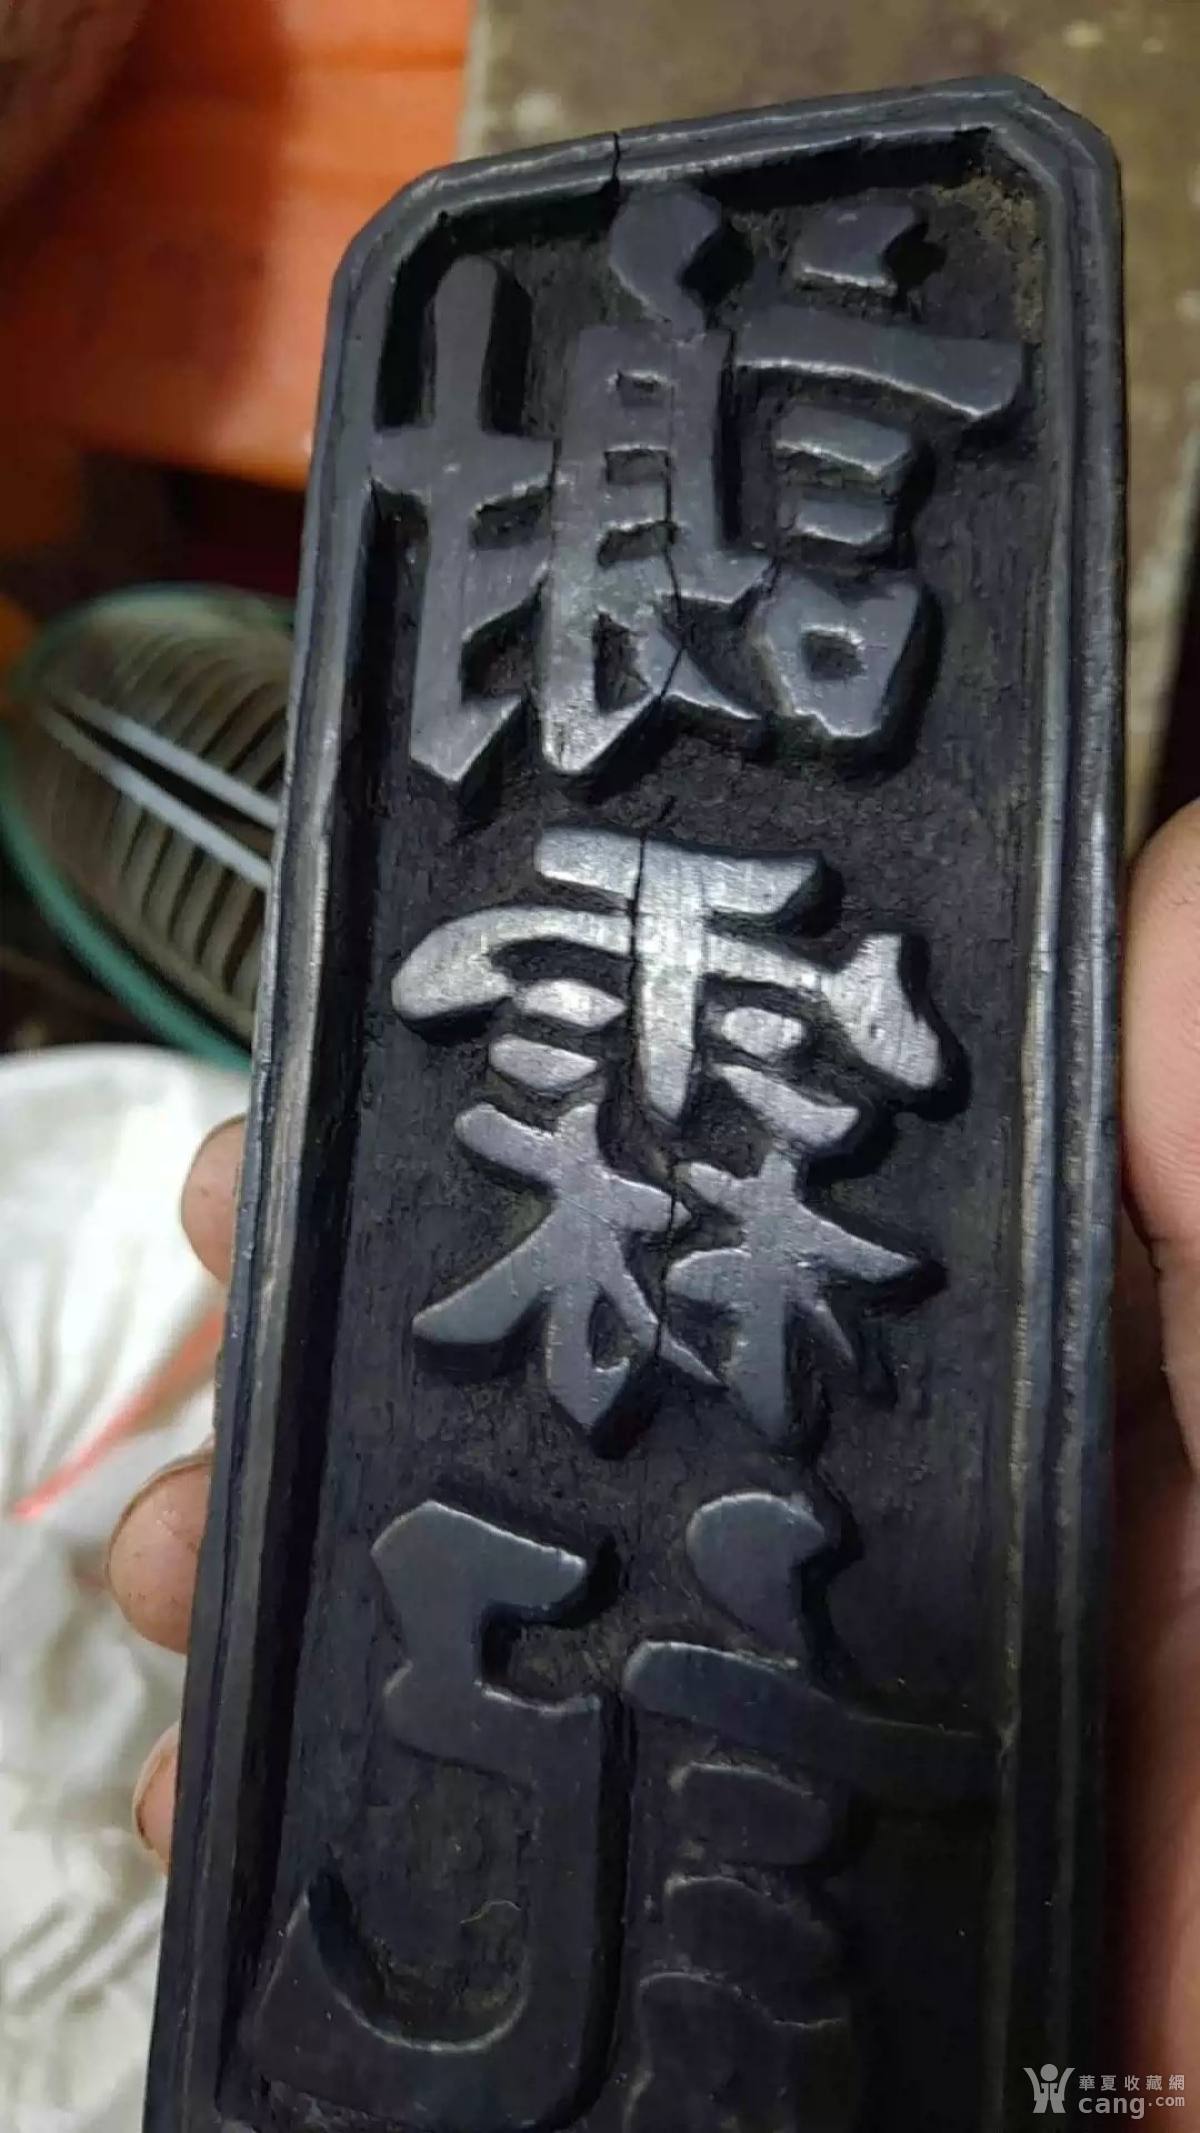 謝霖記
華夏收藏網
cang.com